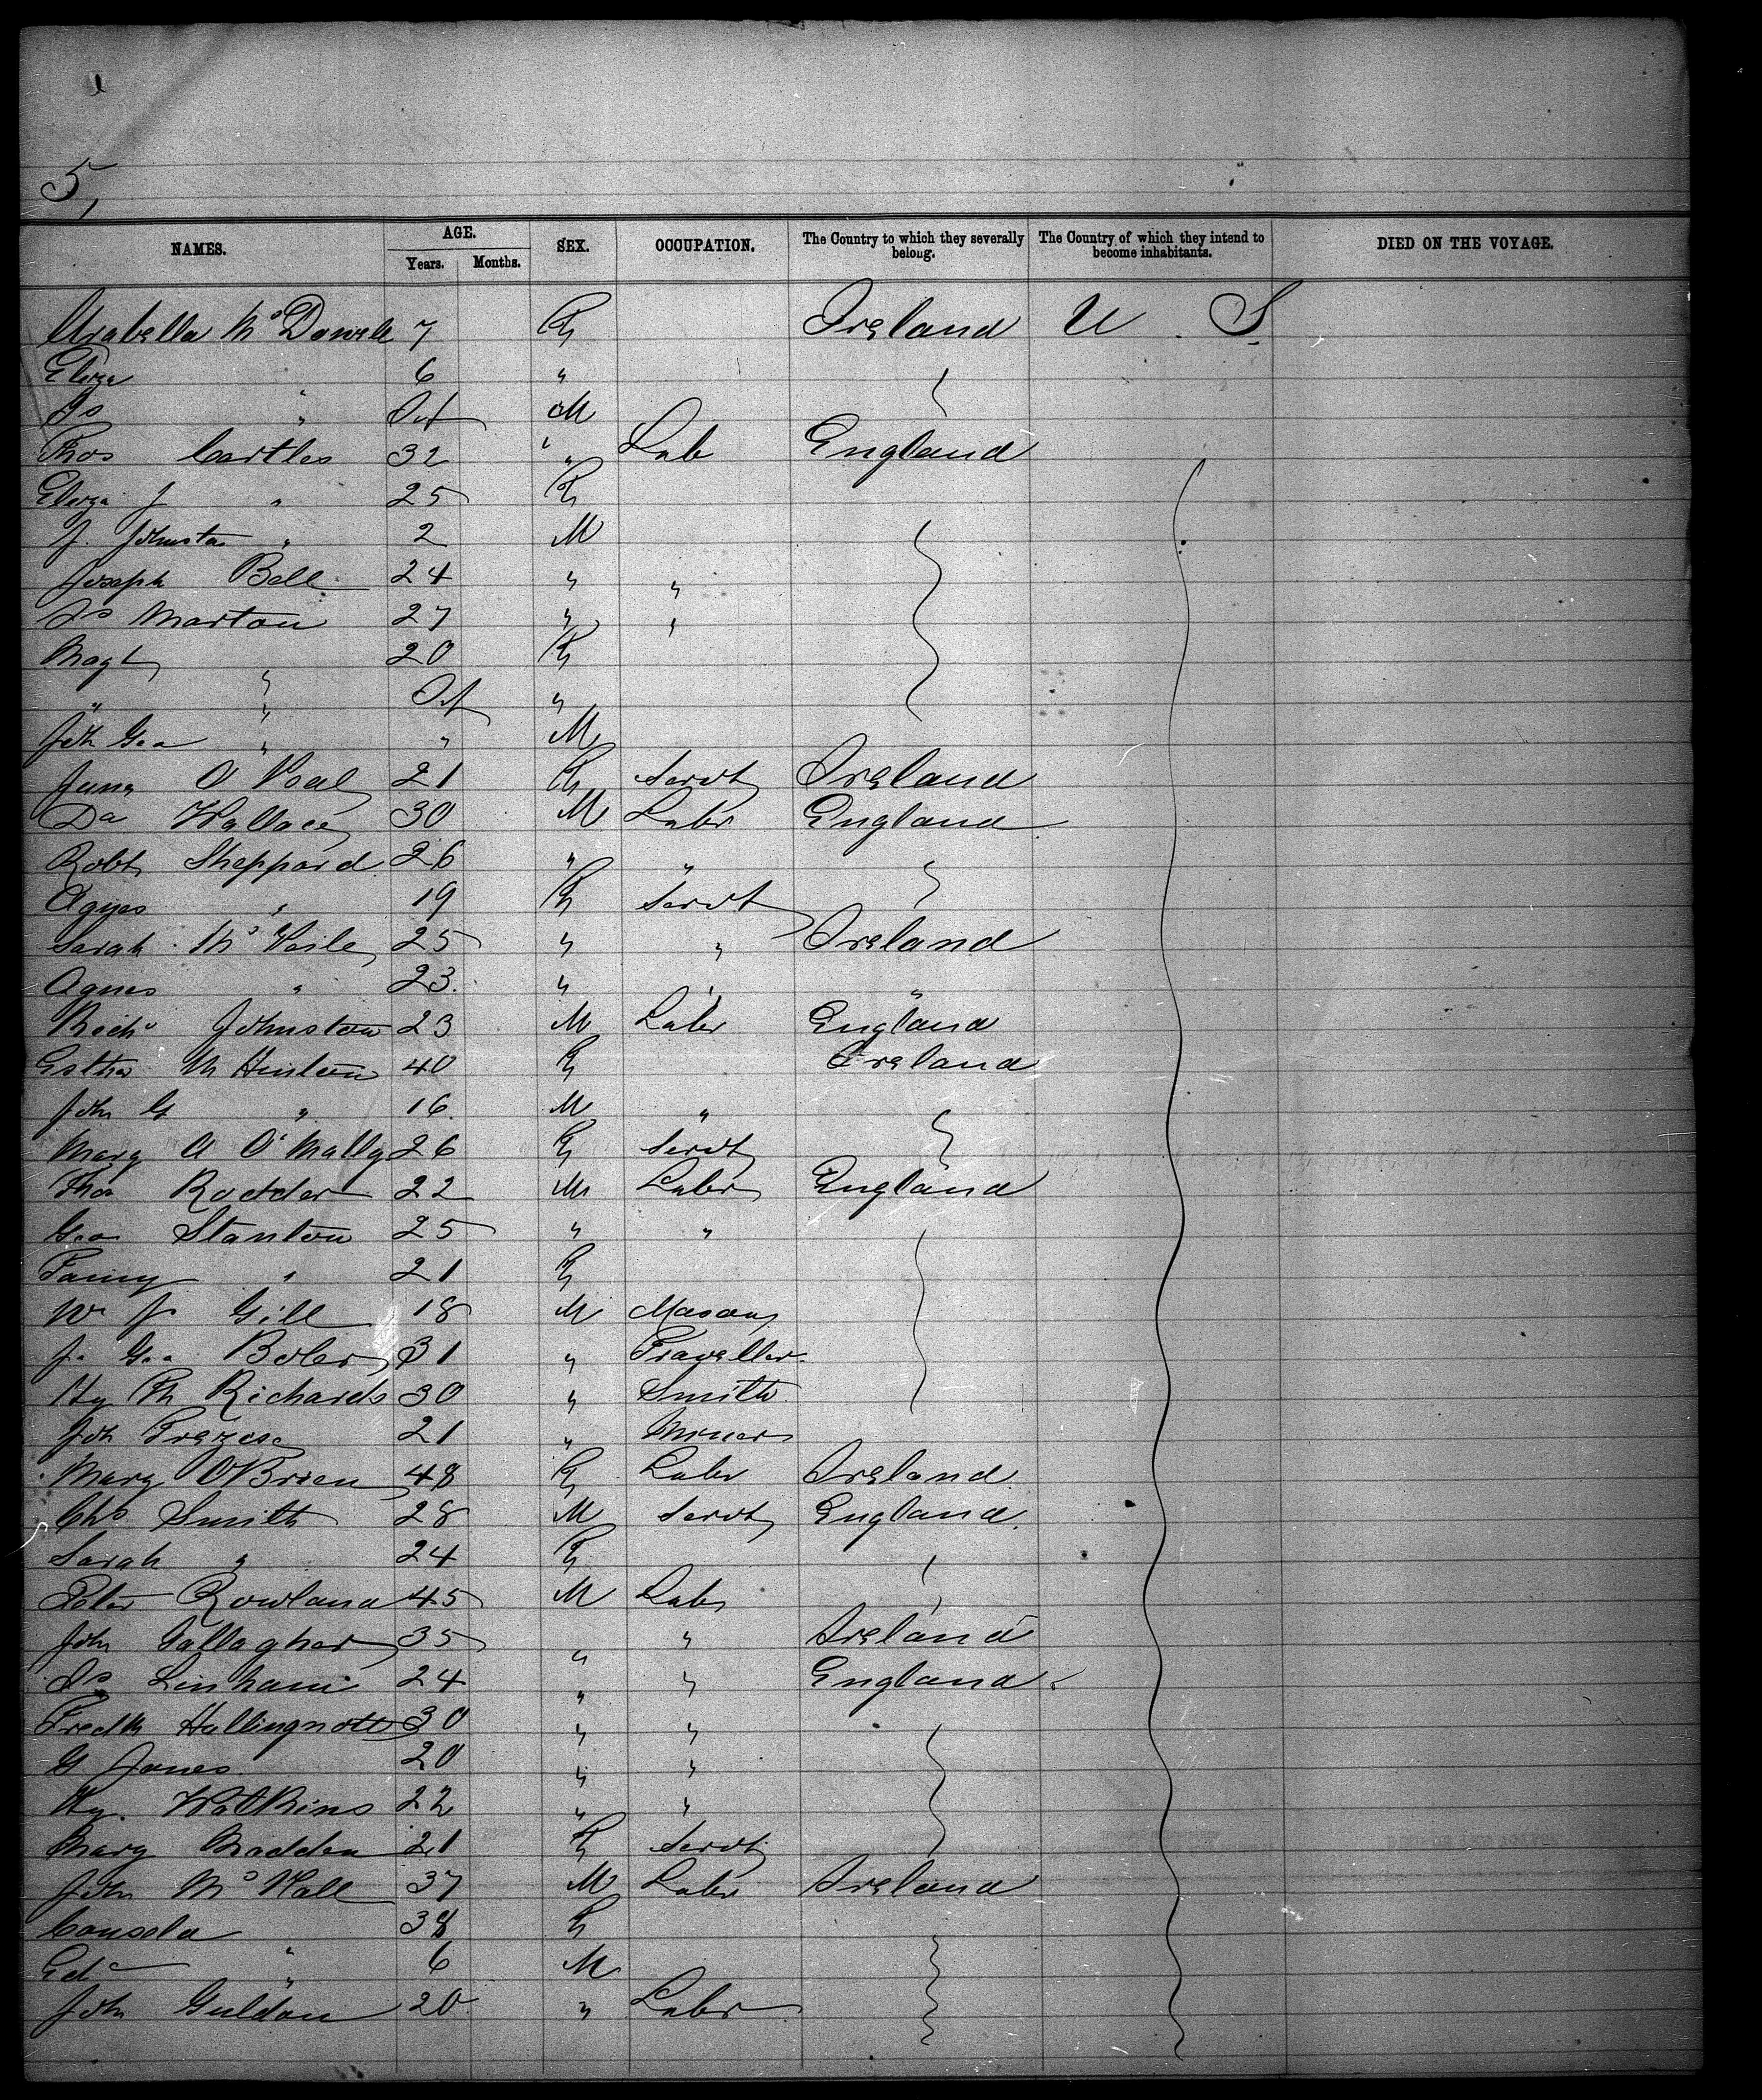 5,
NAMES. AGE. SEX. OCCUPATION. The Country to which they severally belong. The Country of which they intend to become inhabitants. DIED ON THE VOYAGE.
Years. Months.
Arabella McDowell 7 F Ireland U. S.
Eliza 6 "
Js " Inf M
Thos Cartles 32 " Lab England
Eliza J " 25 F
J. Johnston " 2 M
Joseph Bell 24 " "
Js Marton 27 " "
Magt 20 F
" " Inf "
Joh Geo " " M
Jane O'Neal 21 F Servt Ireland
Da Wallace 30 M Labr England
Robt Sheppard 26 " "
Agnes " 19 F Servt
Sarah McVeile 25 " " Ireland
Agnes " 23 " " "
Richd Johnston 23 M Labr England
Esther McHinton 40 F Ireland
John G " 16 M "
Mary A O'Mally 26 F Servt
Thos Rodder 22 M Labr England
Geo Stanton 25 " "
Fanny " 21 F
Wm J. Gill 18 M Mason
J. Geo Boler 31 " Traveller
Hy Ph Richards 30 " Smith
Joh 21 " Miner
Mary O'Brien 48 F Labr Ireland
Chs Smith 28 M Servt England
Sarah " 24 F
Peter Rowland 45 M Labr
John Gallagher 35 " " Ireland
Js Linham 24 " " England
Fredk 30 " "
G Jones 20 " "
Hy. Watkins 22 " "
Mary Madden 21 F Servt
John McHall 37 M Labr Ireland
38 F
Ed " 6 M
John Guldon 20 " Labr